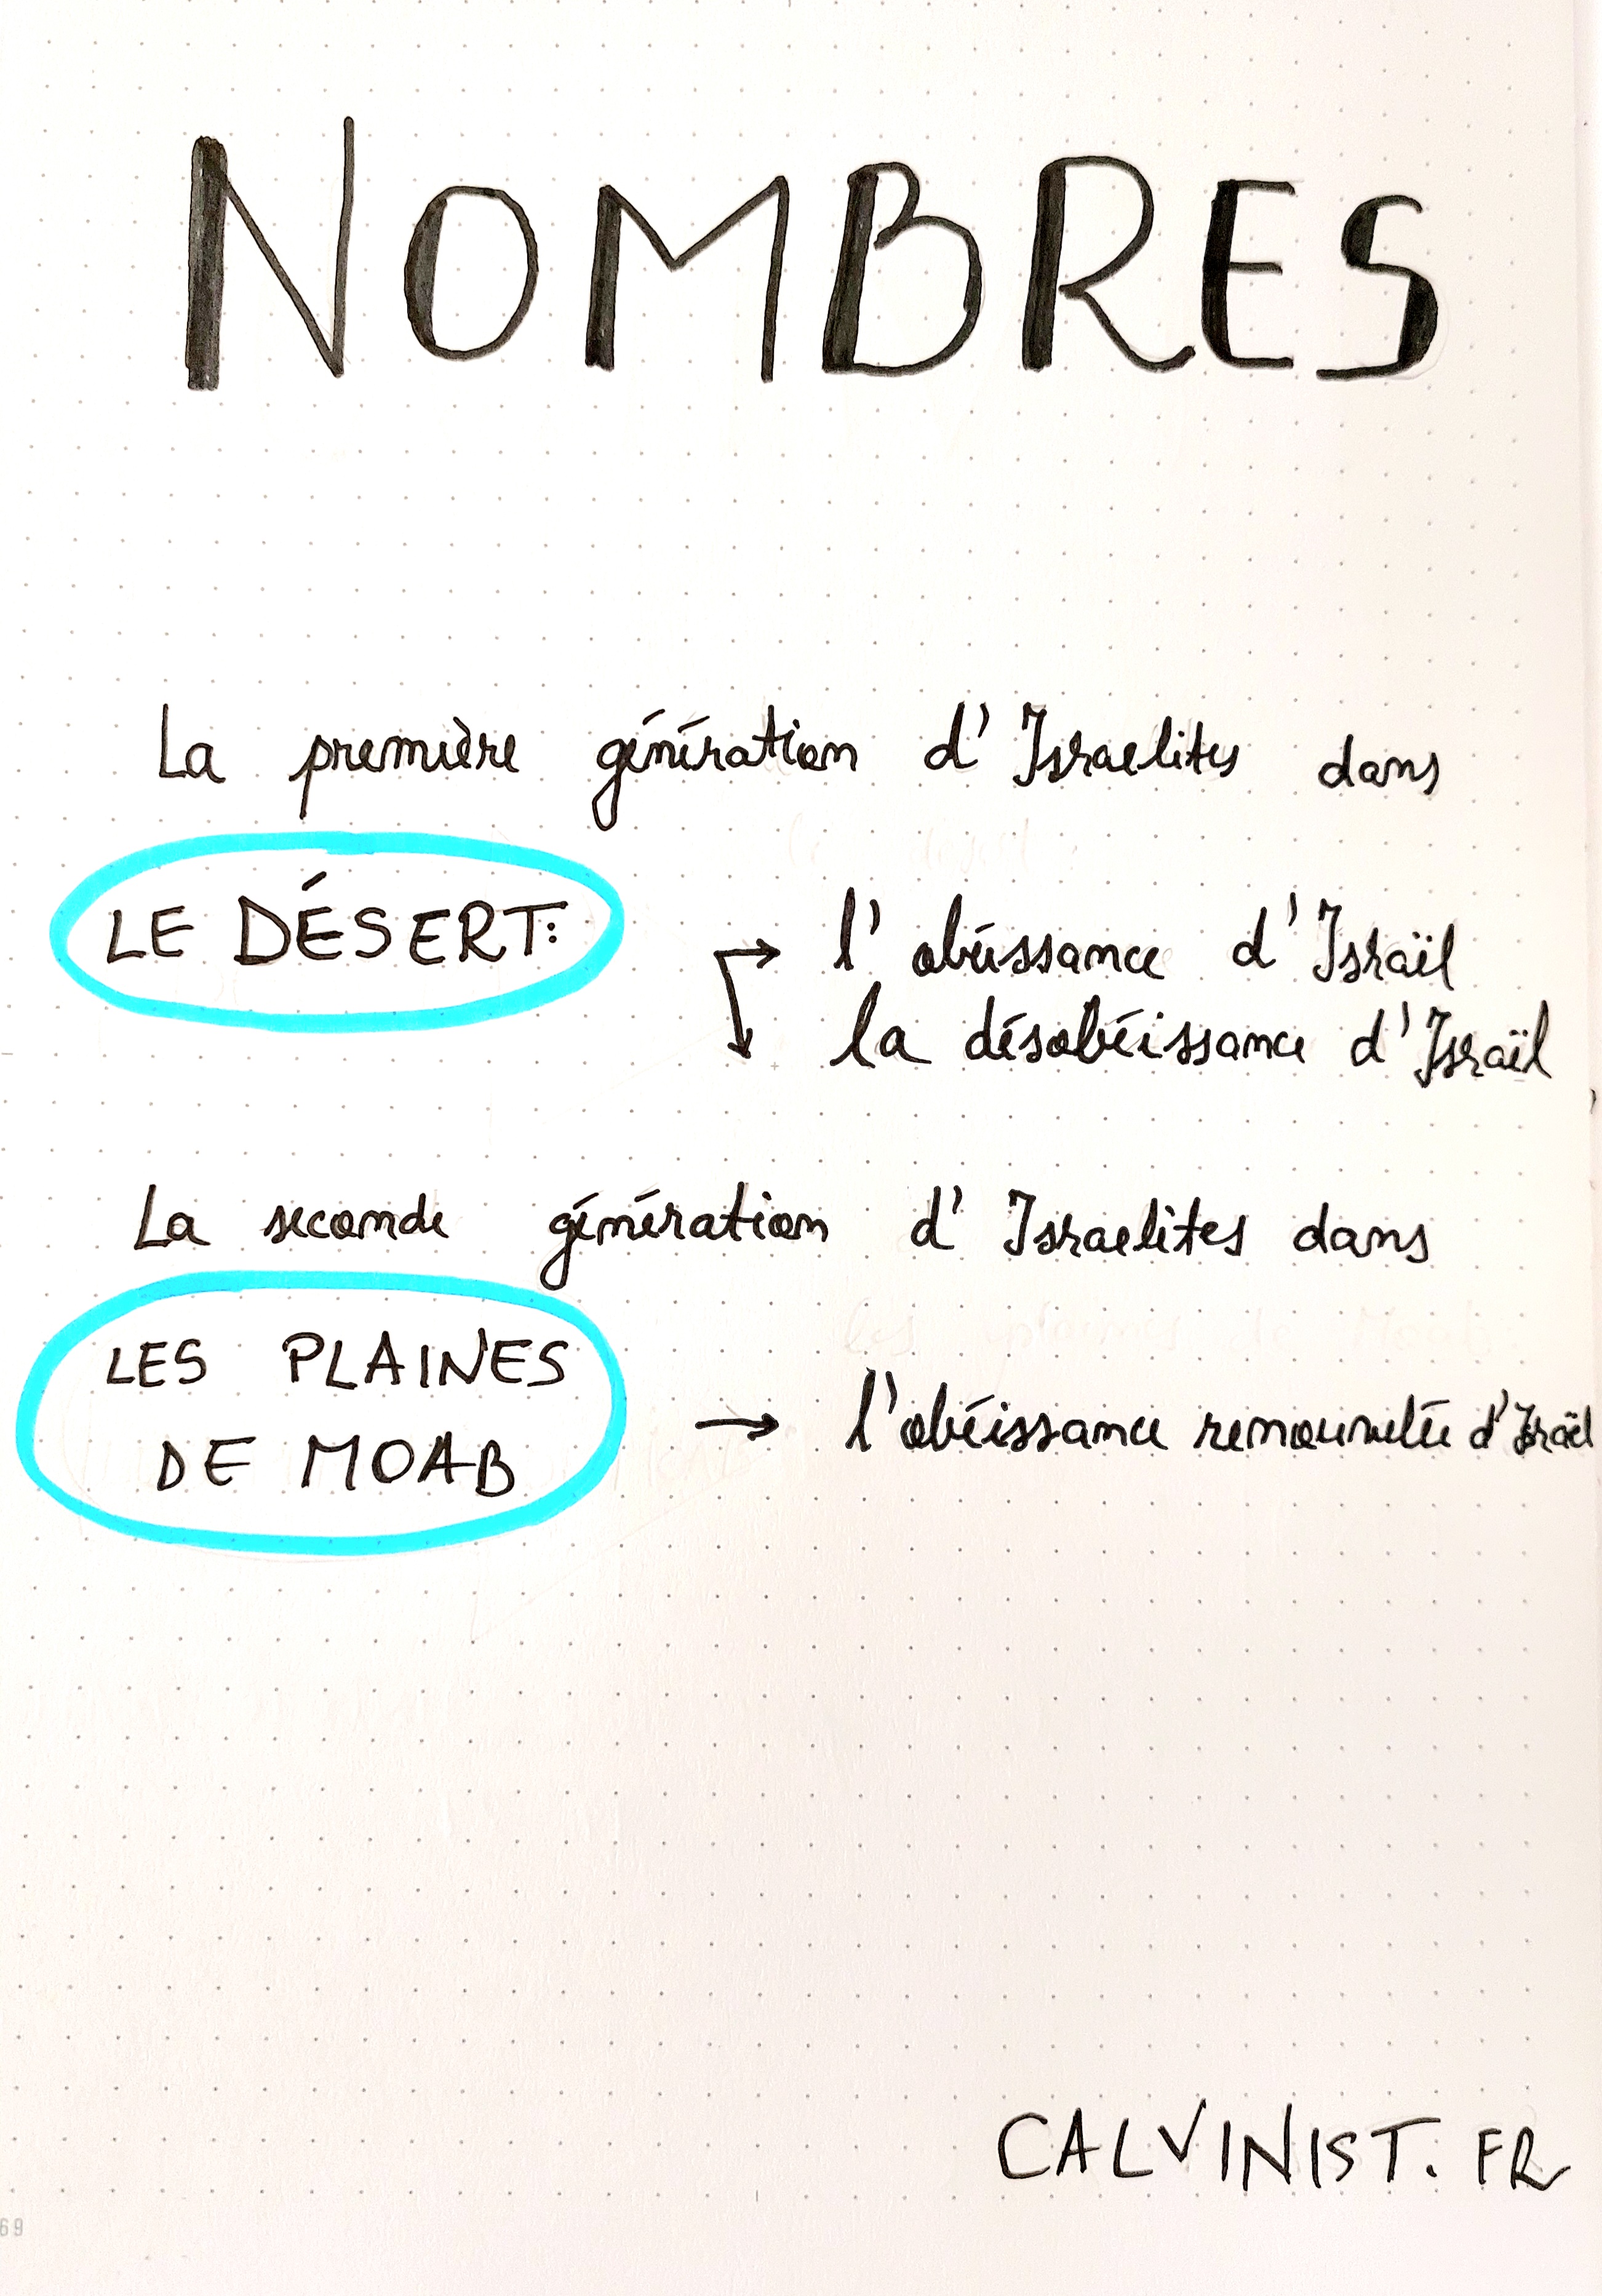 NOMBRES
La première génération d'Israelites dans
LE DÉSERT:
l'obéissance d'Israïl
la désobéissance d'Israïl
La seconde génération d'Israelites dans
LES PLAINES
DE MOAB
→ l'obéissance renouvelée d'Israël
CALVINIST.FR
69